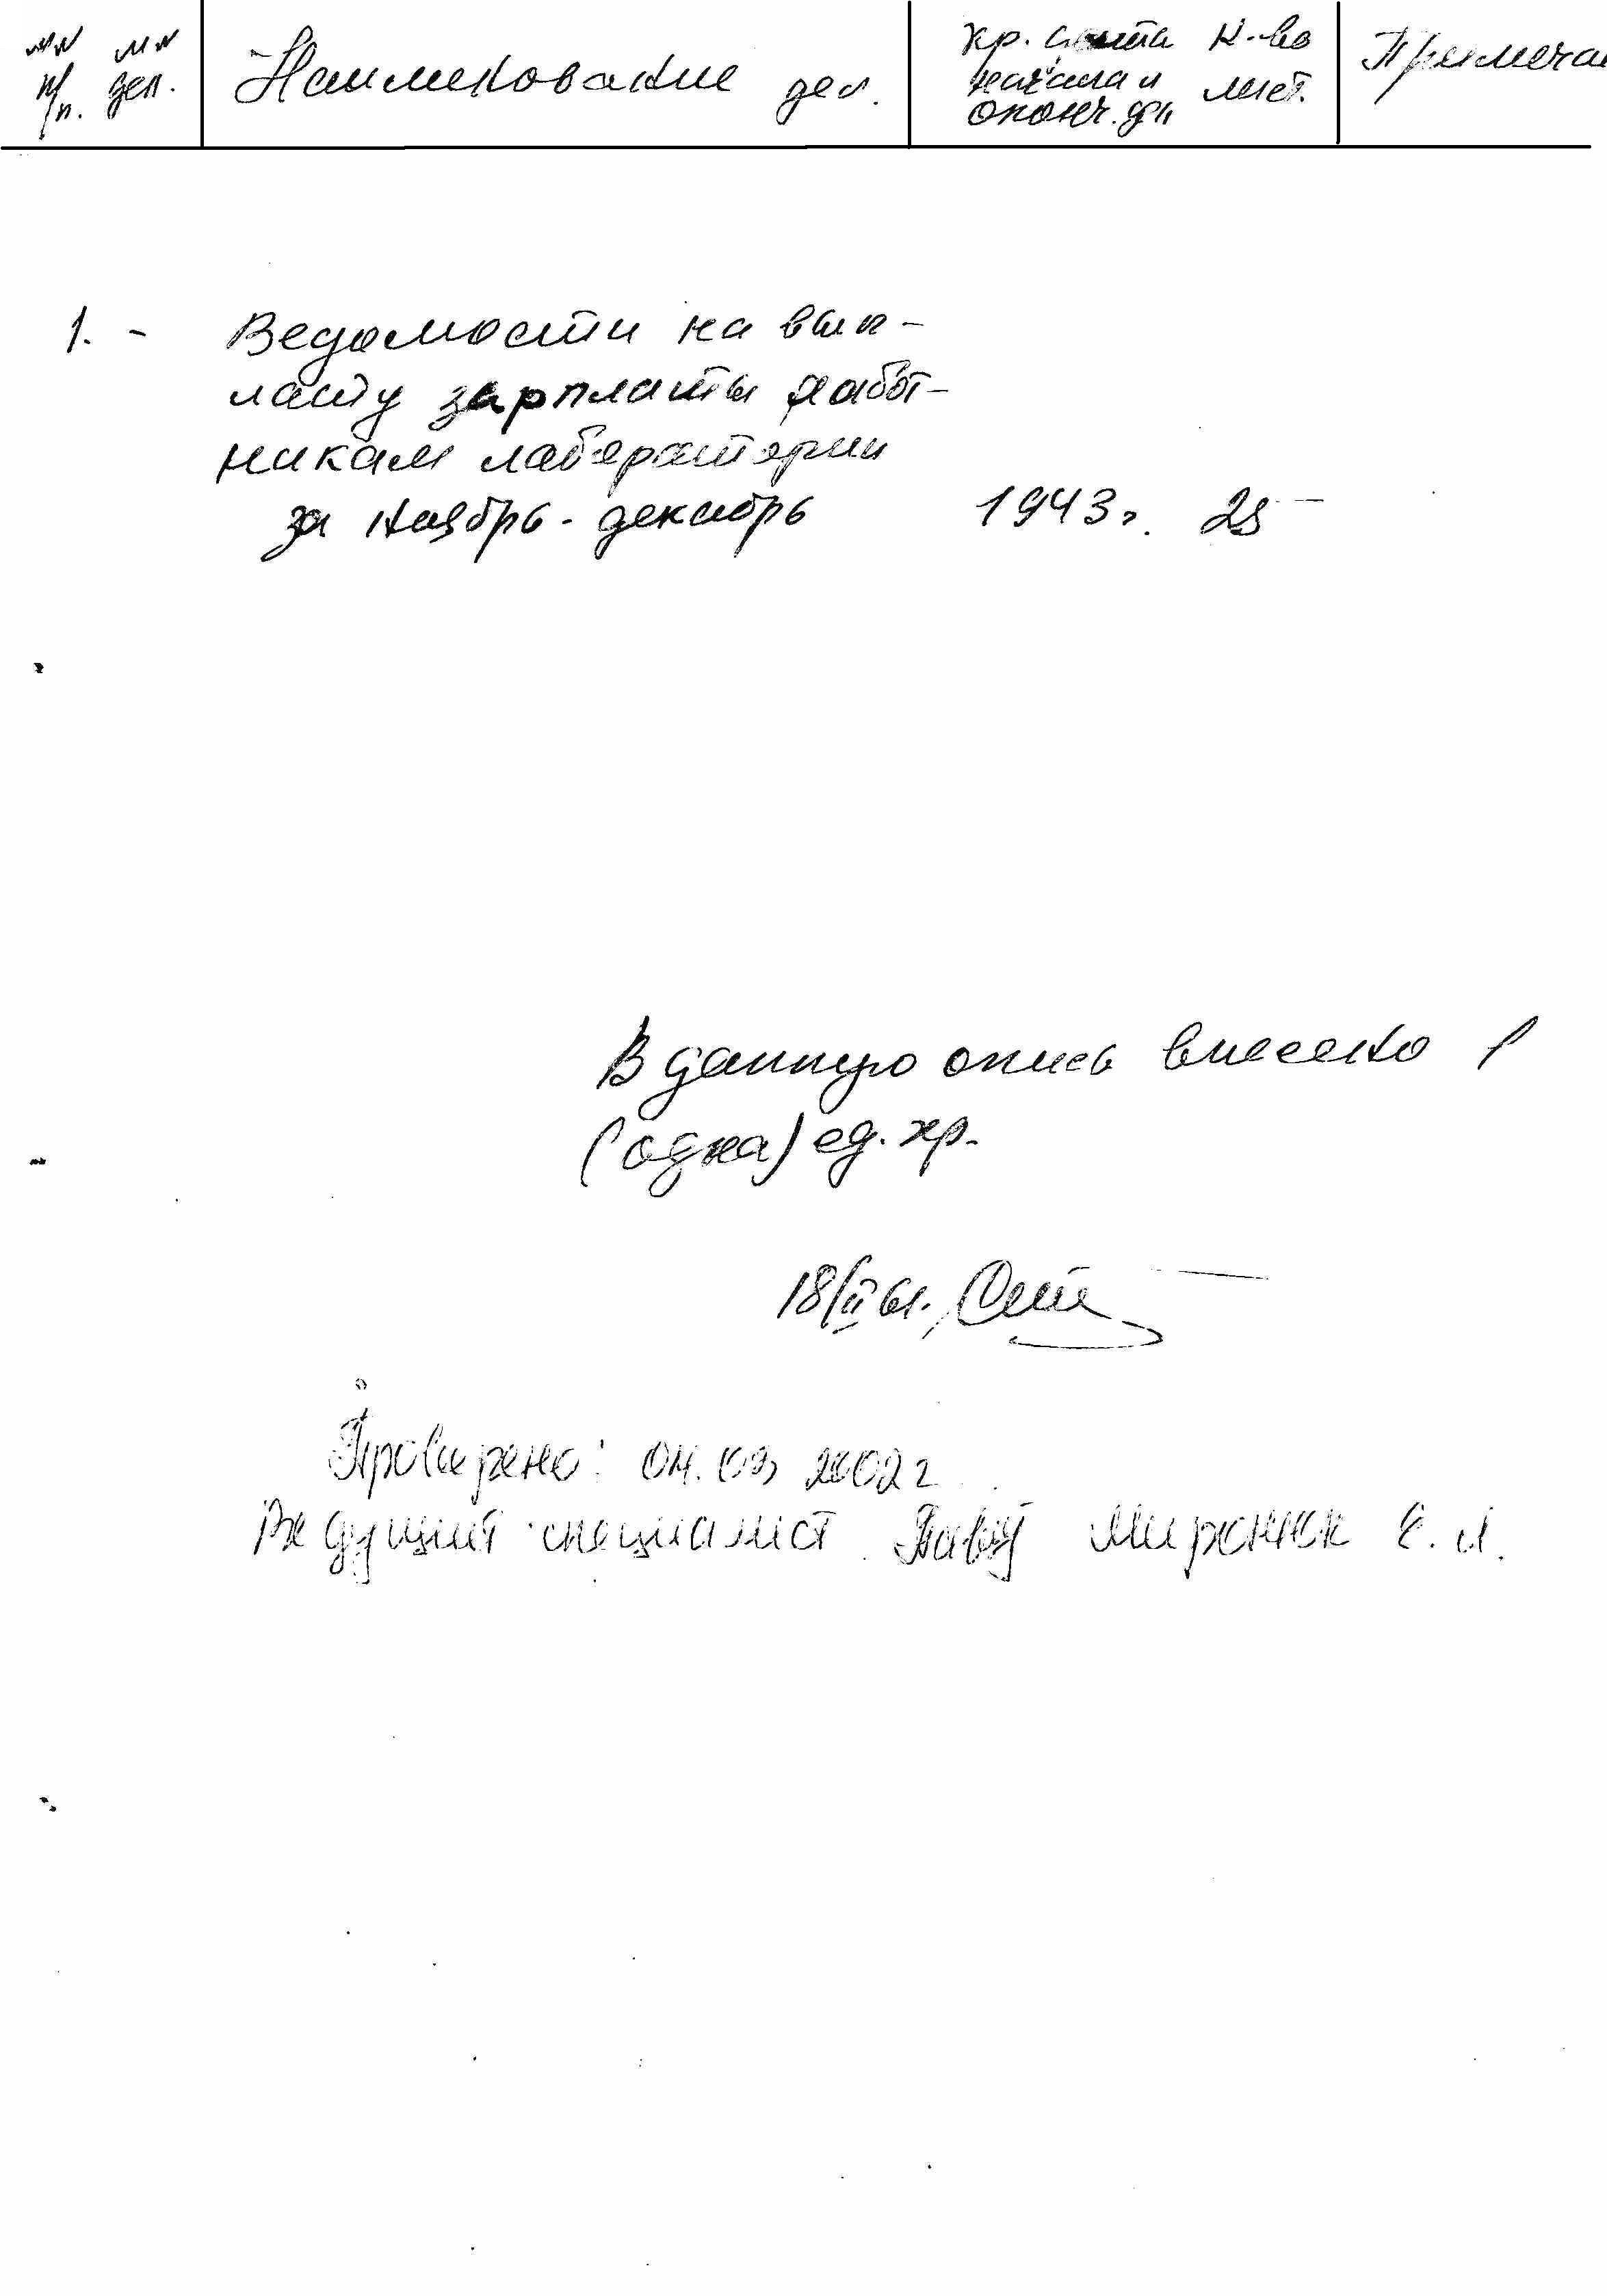 №№ №№ Наименование дел. К-во Примеча
п/п. дел. начала и лист.
оконч.
1. - Ведомости на вып-
лату зарплаты работ-
никам лаборатории
за ноябрь-декабрь 1943г. 25 -
В данную опись внесено 1
(одна) ед. хр.
18/II 61.
Проверено: 04.03 2002г
Ведущий специалист Миронюк Е. И.